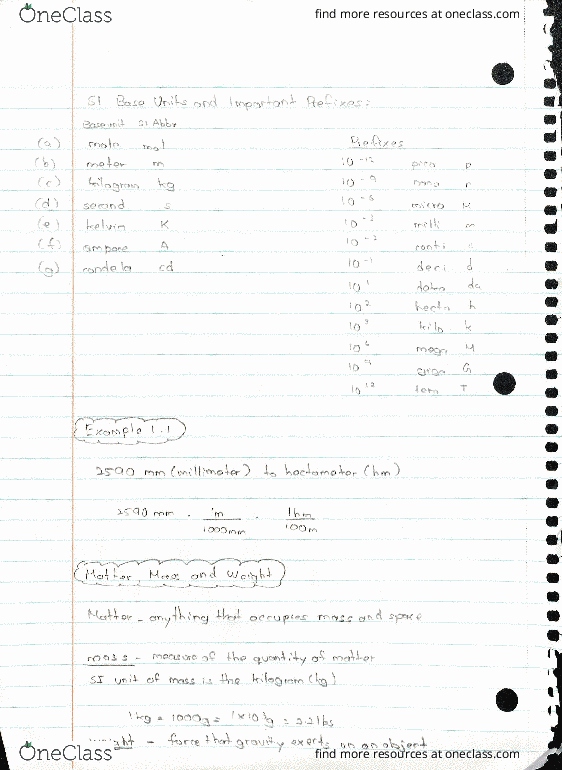 OneClass
find more resources at oneclass.com
SI Base Units and Important Prefixes:
Base unit SI Abbr
(a) mole mol
Prefixes
(b) meter m
10⁻¹² pico p
(c) kilogram kg
10⁻⁹ nano n
(d) second s
10⁻⁶ micro μ
(e) kelvin K
10⁻³ milli m
(f) ampere A
10⁻² centi c
(g) candela cd
10⁻¹ deci d
10¹ deka da
10² hecto h
10³ kilo k
10⁶ mega M
10⁹ giga G
10¹² tera T
Example 1.1
2590 mm (millimeter) to hectometer (hm)
2590 mm · 1m/1000mm · 1hm/100m
Matter, Mass and Weight
Matter - anything that occupies mass and space
mass - measure of the quantity of matter
SI unit of mass is the kilogram (kg)
1kg = 1000g = 1×10³g = 2.2lbs
weight - force that gravity exerts on an object
OneClass
find more resources at oneclass.com